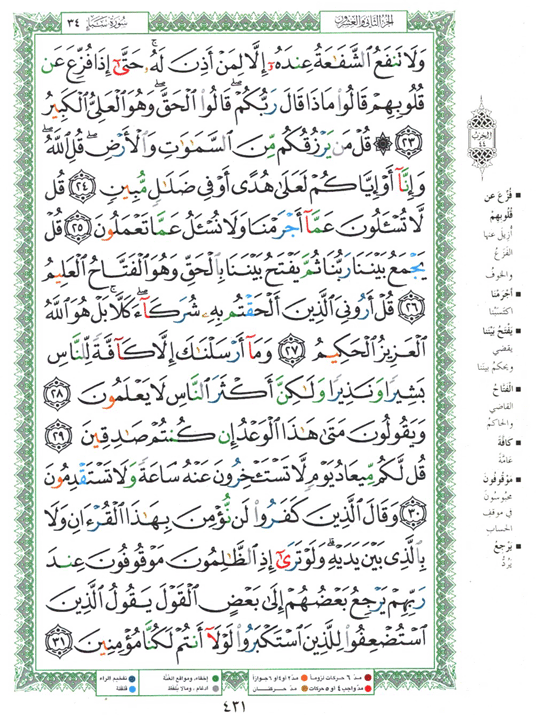 الجزء الثاني والعشرون
سُورَةُ سَبَإٍ ٣٤
وَلَا تَنفَعُ ٱلشَّفَٰعَةُ عِندَهُۥٓ إِلَّا لِمَنْ أَذِنَ لَهُۥ ۚ حَتَّىٰٓ إِذَا فُزِّعَ عَن
قُلُوبِهِمْ قَالُوا۟ مَاذَا قَالَ رَبُّكُمْ ۖ قَالُوا۟ ٱلْحَقَّ ۖ وَهُوَ ٱلْعَلِىُّ ٱلْكَبِيرُ
﴿٢٣﴾ ۞ قُلْ مَن يَرْزُقُكُم مِّنَ ٱلسَّمَٰوَٰتِ وَٱلْأَرْضِ ۖ قُلِ ٱللَّهُ ۖ
وَإِنَّآ أَوْ إِيَّاكُمْ لَعَلَىٰ هُدًى أَوْ فِى ضَلَٰلٍ مُّبِينٍ ﴿٢٤﴾ قُل
لَّا تُسْـَٔلُونَ عَمَّآ أَجْرَمْنَا وَلَا نُسْـَٔلُ عَمَّا تَعْمَلُونَ ﴿٢٥﴾ قُلْ
يَجْمَعُ بَيْنَنَا رَبُّنَا ثُمَّ يَفْتَحُ بَيْنَنَا بِٱلْحَقِّ وَهُوَ ٱلْفَتَّاحُ ٱلْعَلِيمُ
﴿٢٦﴾ قُلْ أَرُونِىَ ٱلَّذِينَ أَلْحَقْتُم بِهِۦ شُرَكَآءَ ۖ كَلَّا ۚ بَلْ هُوَ ٱللَّهُ
ٱلْعَزِيزُ ٱلْحَكِيمُ ﴿٢٧﴾ وَمَآ أَرْسَلْنَٰكَ إِلَّا كَآفَّةً لِّلنَّاسِ
بَشِيرًا وَنَذِيرًا وَلَٰكِنَّ أَكْثَرَ ٱلنَّاسِ لَا يَعْلَمُونَ ﴿٢٨﴾
وَيَقُولُونَ مَتَىٰ هَٰذَا ٱلْوَعْدُ إِن كُنتُمْ صَٰدِقِينَ ﴿٢٩﴾
قُل لَّكُم مِّيعَادُ يَوْمٍ لَّا تَسْتَـْٔخِرُونَ عَنْهُ سَاعَةً وَلَا تَسْتَقْدِمُونَ
﴿٣٠﴾ وَقَالَ ٱلَّذِينَ كَفَرُوا۟ لَن نُّؤْمِنَ بِهَٰذَا ٱلْقُرْءَانِ وَلَا
بِٱلَّذِى بَيْنَ يَدَيْهِ ۗ وَلَوْ تَرَىٰٓ إِذِ ٱلظَّٰلِمُونَ مَوْقُوفُونَ عِندَ
رَبِّهِمْ يَرْجِعُ بَعْضُهُمْ إِلَىٰ بَعْضٍ ٱلْقَوْلَ يَقُولُ ٱلَّذِينَ
ٱسْتُضْعِفُوا۟ لِلَّذِينَ ٱسْتَكْبَرُوا۟ لَوْلَآ أَنتُمْ لَكُنَّا مُؤْمِنِينَ ﴿٣١﴾
الحزب
٤٤
■ فُزِّعَ عن
قُلُوبِهِمْ
أُزِيلَ عنها
الفَزَعُ
والخوفُ
■ أَجْرَمْنَا
اكتسبْنا
■ يَفْتَحُ بَيْنَنا
يقضي
ويحكمُ بيننا
■ الْفَتَّاحُ
القاضي
والحاكمُ
■ كَافَّةً
عامَّةً
■ مَوْقُوفُونَ
محبوسُونَ
في موقفِ
الحساب
■ يَرْجِعُ
يَرُدُّ
مدّ ٦ حركات لزوماً مدّ ٢ أو ٤ أو ٦ جوازاً إخفاء، ومواقع الغُنَّة تفخيم الراء
مدّ واجب ٤ أو ٥ حركات مدّ حركتان إدغام، وما لا يُلفظ قلقلة
٤٣١